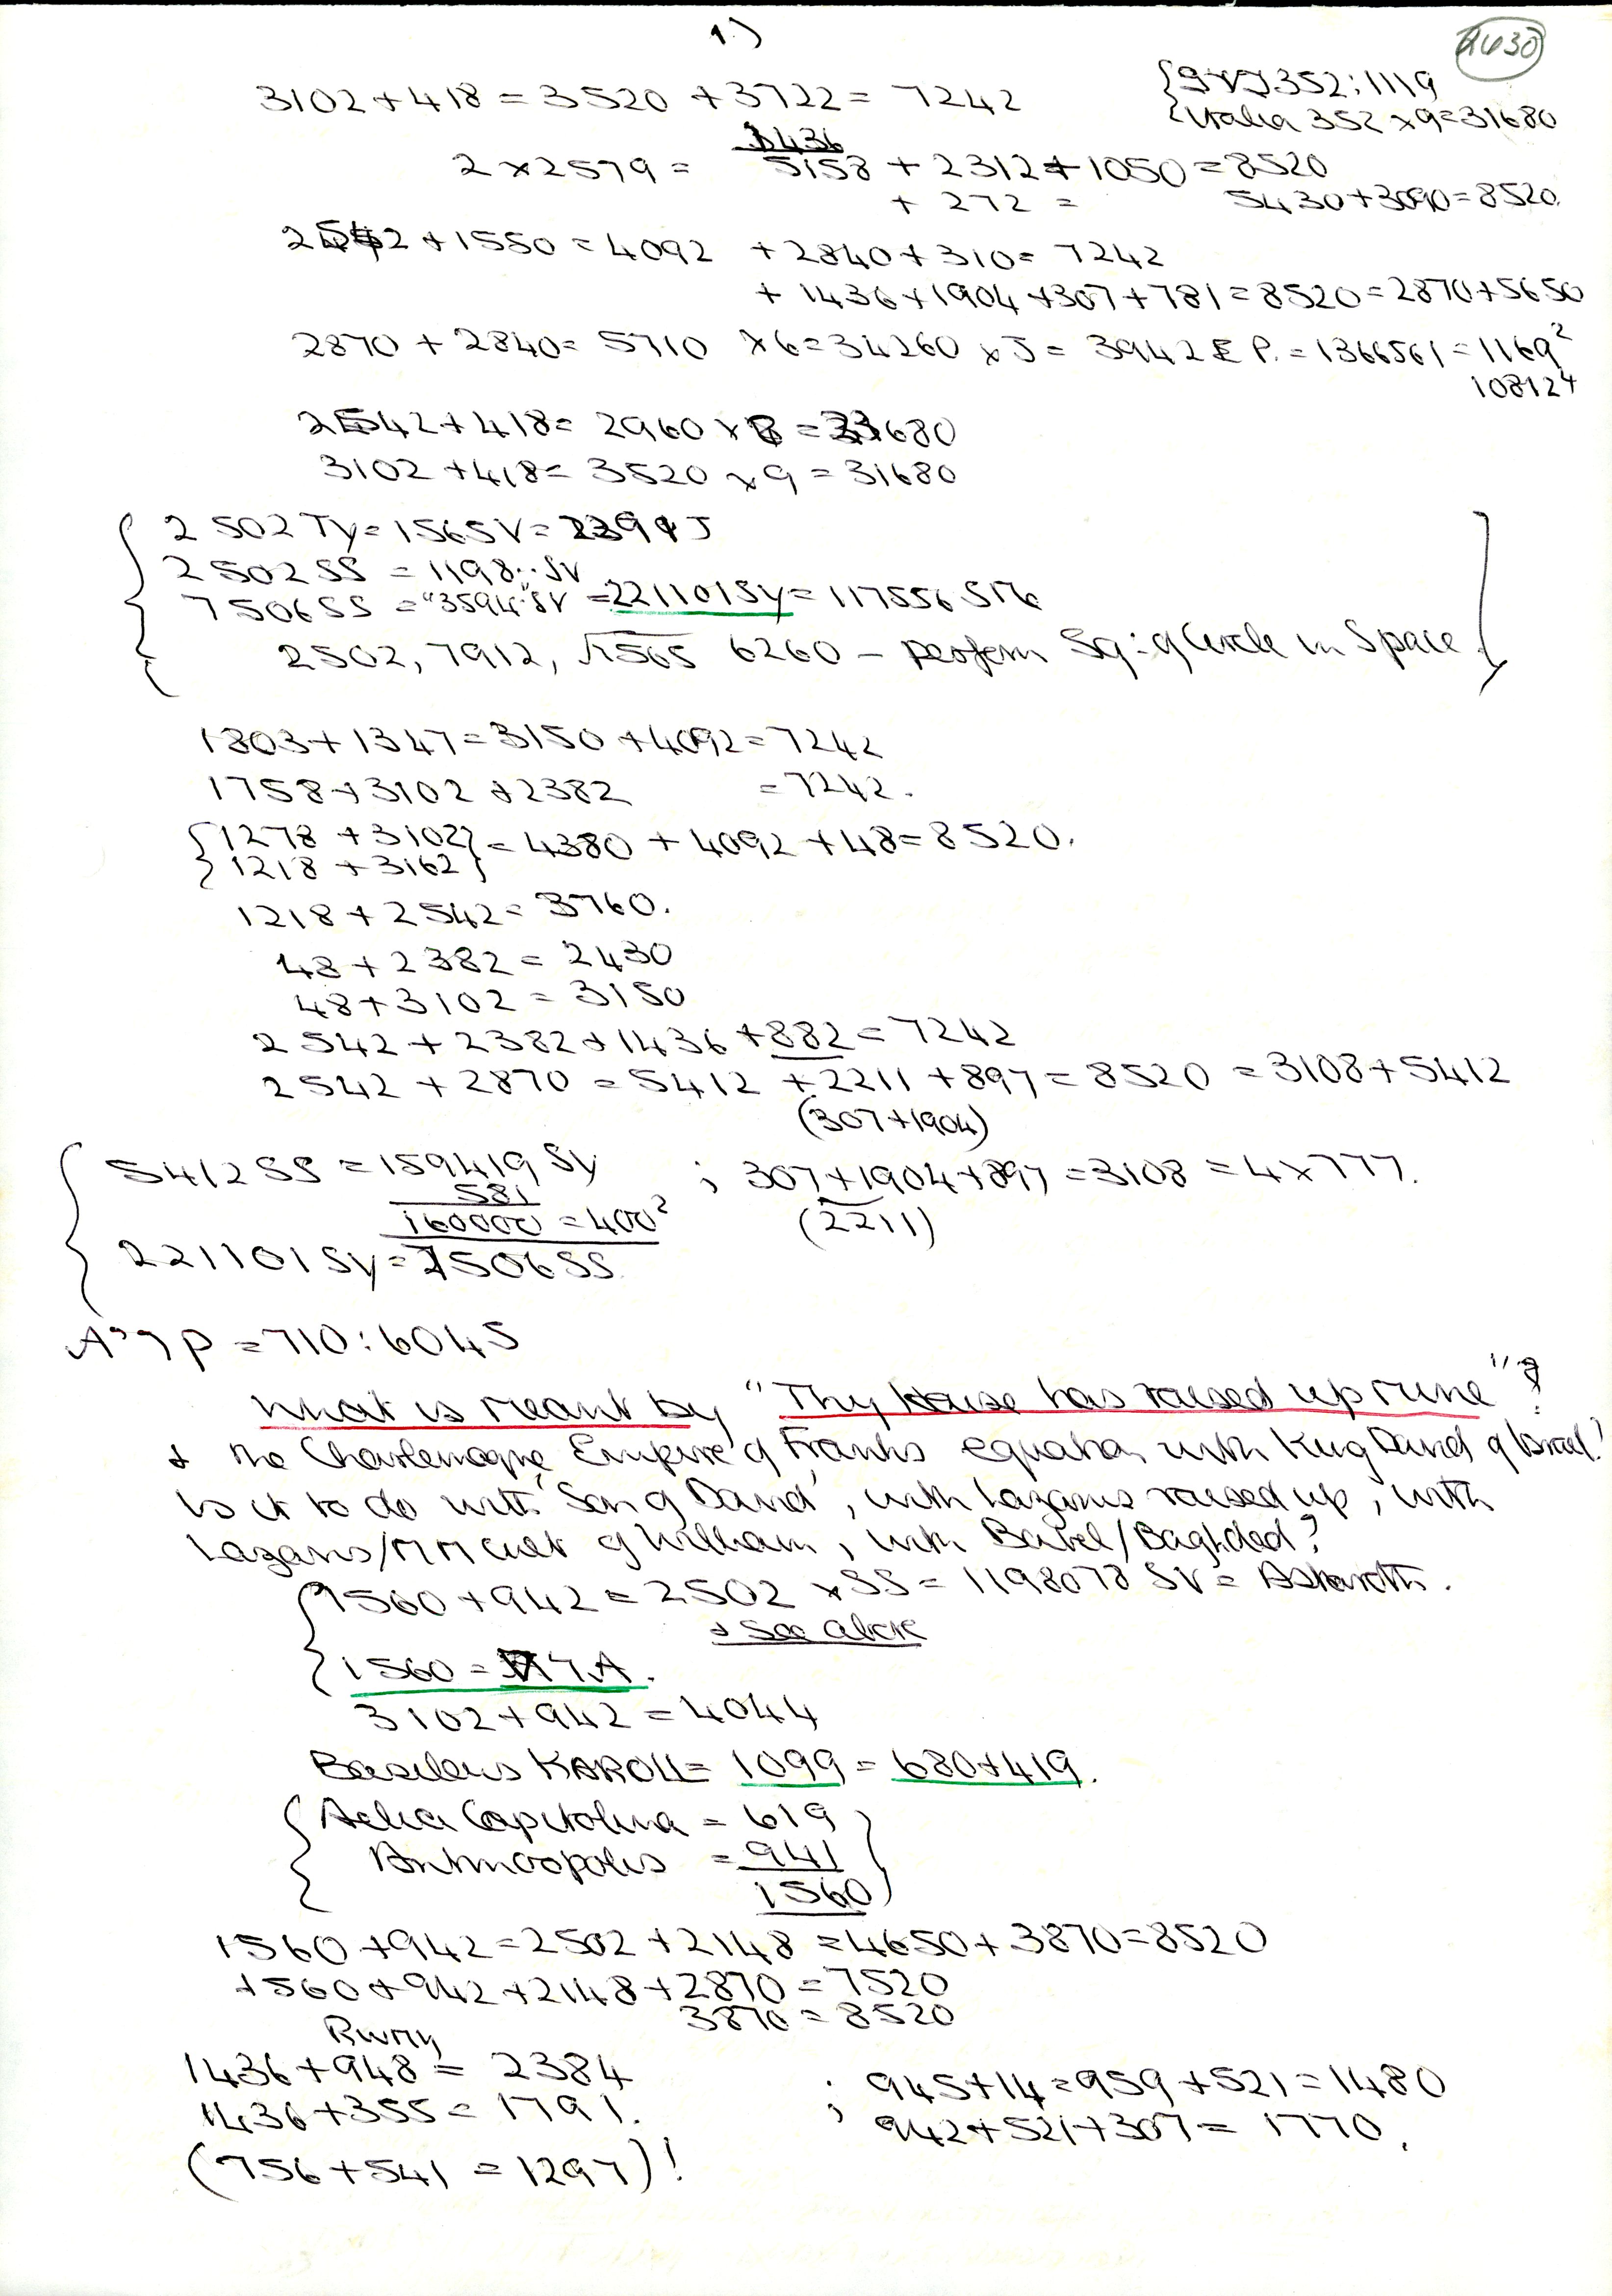 1.)
2630
3102 + 418 = 3520 + 3722 = 7242
352 : 1119
Italia 352 x 9 = 31680
1436
2 x 2579 = 5158 + 2312 + 1050 = 8520
+ 272 = 5430 + 3090 = 8520.
2542 + 1550 = 4092 + 2840 + 310 = 7242
+ 1436 + 1904 + 307 + 781 = 8520 = 2870 + 5650
2870 + 2840 = 5710 x 6 = 34260 x J = 3942 E P. = 1366561 = 1169²
108124
2542 + 418 = 2960 x 8 = 680
3102 + 418 = 3520 x 9 = 31680
2502 Ty = 1565 V = 2391 J
2502 SS = 1198.. SV
7506 SS = "3594." SV = 221101 SY = 117556 STh
2502, 7912, √1565 6260 – perform Sq : g Circle in Space
1803 + 1347 = 3150 + 4092 = 7242
1758 + 3102 + 2382 = 7242.
{1278 + 3102} = 4380 + 4092 + 48 = 8520.
{1218 + 3162}
1218 + 2542 = 3760.
48 + 2382 = 2430
48 + 3102 = 3150
2542 + 2382 + 1436 + 882 = 7242
2542 + 2870 = 5412 + 2211 + 897 = 8520 = 3108 + 5412
(307 + 1904)
5412 SS = 159419 SY ; 307 + 1904 + 897 = 3108 = 4 x 777.
581
160000 = 400² (2211)
221101 SY = 7506 SS
= 710 : 6045
What is meant by "Thy House has raised up mine"?
& the Charlemagne Empire g Franks equation with King David g Israel?
Is it to do with 'Son g David', with Lazarus raised up, with
Lazarus/MM cult g William, with Babel/Baghdad?
1560 + 942 = 2502 x SS = 1198078 SV = Astaroth.
& see above
1560 = A.
3102 + 942 = 4044
Basileus KAROLL = 1099 = 680 + 419.
Aelia Capitolina = 619
Anthropolis = 941
1560
1560 + 942 = 2502 + 2148 = 4650 + 3870 = 8520
1560 + 942 + 2148 + 2870 = 7520
3870 = 8520
1436 + 948 = 2384
1436 + 355 = 1791.
; 945 + 14 = 959 + 521 = 1480
942 + 521 + 307 = 1770.
(756 + 541 = 1297)!